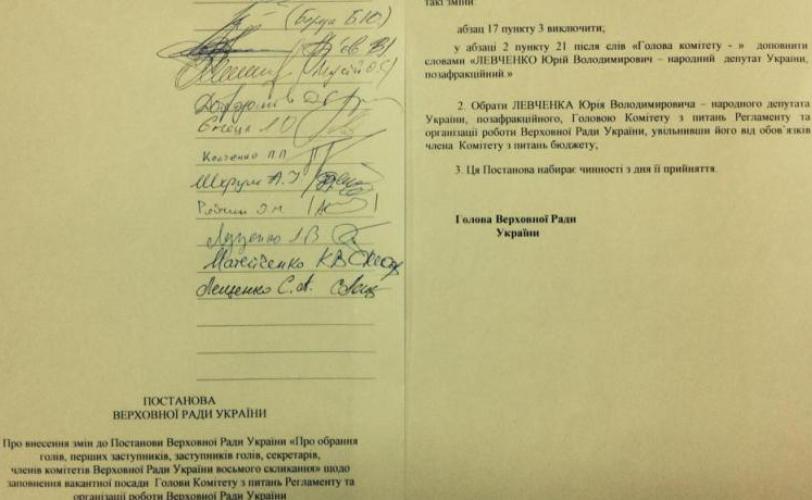 (Береза Б.Ю.)
Єднак
Козаченко Л.П.
Шкрум А.І.
Рябчин О.М.
Луценко І.В
Матейченко К В
Лещенко С.А.
ПОСТАНОВА
ВЕРХОВНОЇ РАДИ УКРАЇНИ
Про внесення змін до Постанови Верховної Ради України «Про обрання
голів, перших заступників, заступників голів, секретарів,
членів комітетів Верховної Ради України восьмого скликання» щодо
заповнення вакантної посади Голови Комітету з питань Регламенту та
організації роботи Верховної Ради України
такі зміни
абзац 17 пункту 3 виключити;
у абзаці 2 пункту 21 після слів «Голова комітету - » доповнити
словами «ЛЕВЧЕНКО Юрій Володимирович – народний депутат України,
позафракційний.»
2. Обрати ЛЕВЧЕНКА Юрія Володимировича – народного депутата
України, позафракційного, Головою Комітету з питань Регламенту та
організації роботи Верховної Ради України, увільнивши його від обов`язків
члена Комітету з питань бюджету;
3. Ця Постанова набирає чинності з дня її прийняття.
Голова Верховної Ради
України